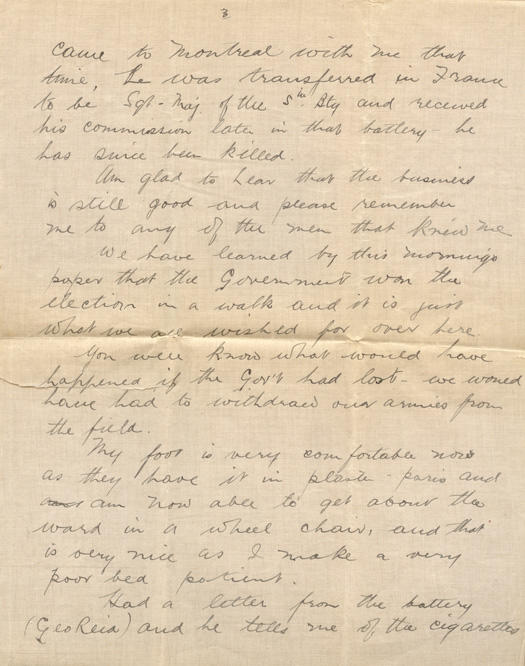 3
came to Montreal with me that
time, he was transferred in France
to be Sgt-Maj. of the 5th Bty and received
his commission later in that battery - he
has since been killed.
Am glad to hear that the business
is still good and please remember
me to any of the men that knew me
We have learned by this mornings
paper that the Government won the
election in a walk and it is just
what we all wished for over here
You know what would have
happened if the Gov't had lost - we would
have had to withdraw our armies from
the field.
My foot is very comfortable now
as they have it in plaste-paris and
am now able to get about the
ward in a wheel chair, and that
is very nice as I make a very
poor bed patient.
Had a letter from the battery
(Geo Reid) and he tells me of the cigarettes